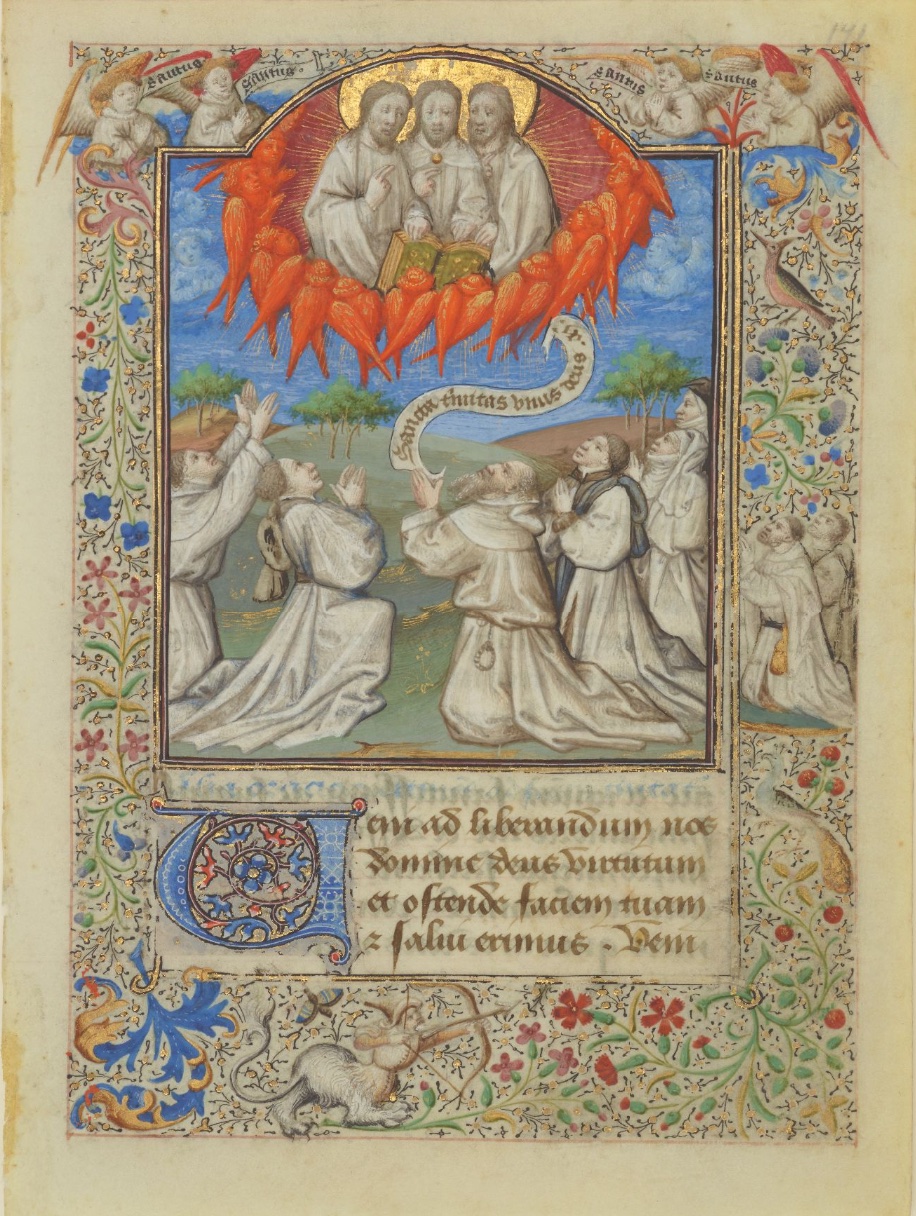 Santus
Santus
Santus
Santus
Sancta trinitas vnus deus
Veni ad liberandum nos
domine deus virtutum
et ostende faciem tuam
⁊ salui erimus . Veni